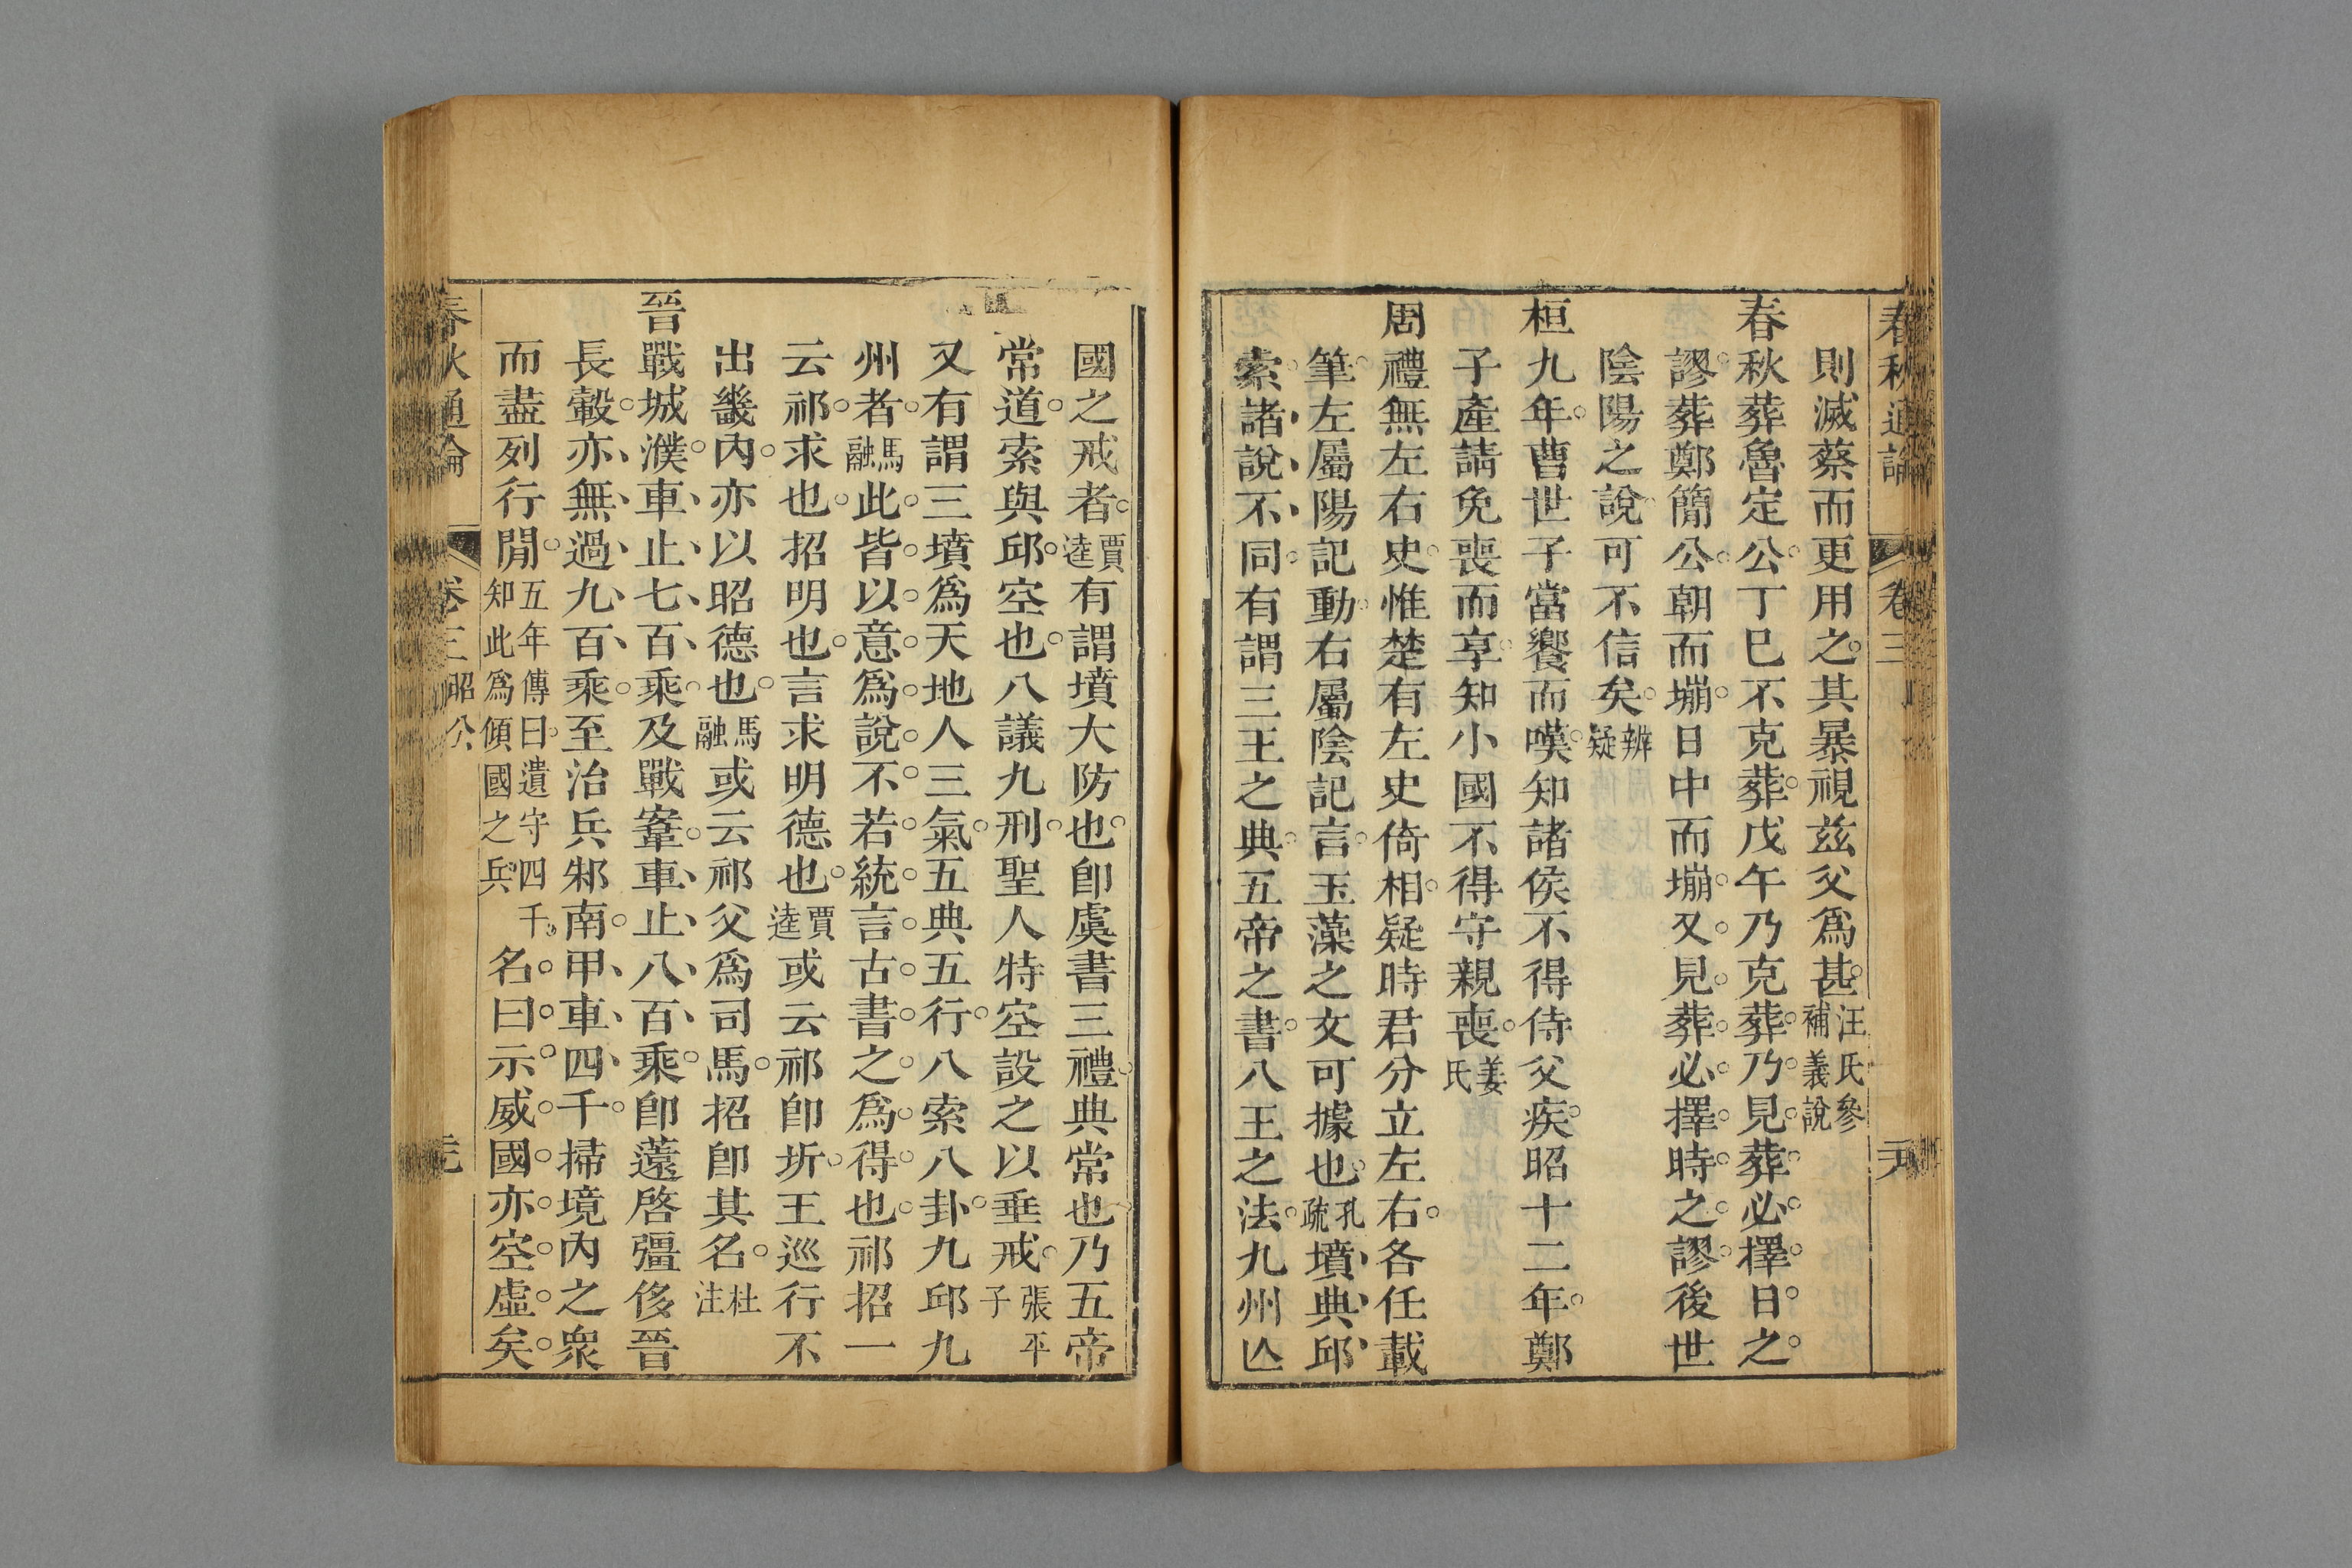 春秋通論
卷三
則滅蔡而更用之其暴視兹父爲甚汪氏參補義說
春秋葬魯定公丁巳不克葬戊午乃克葬乃見葬必擇日之
謬葬鄭簡公朝而堋日中而堋又見葬必擇時之謬後世
陰陽之說可不信矣辨疑
桓九年曹世子當饗而嘆知諸侯不得侍父疾昭十二年鄭
子產請免喪而享知小國不得守親喪姜氏
周禮無左右史惟楚有左史倚相疑時君分立左右各任載
筆左屬陽記動右屬陰記言玉藻之文可據也孔疏墳典邱
索諸說不同有謂三王之典五帝之書八王之法九州亾
國之戒者賈逵有謂墳大防也卽虞書三禮典常也乃五帝
常道索與邱空也八議九刑聖人特空設之以垂戒張平子
又有謂三墳爲天地人三氣五典五行八索八卦九邱九
州者馬融此皆以意爲說不若統言古書之爲得也祁招一
云祁求也招明也言求明德也賈逵或云祁卽圻王巡行不
出畿內亦以昭德也馬融或云祁父爲司馬招卽其名杜注
晉戰城濮車止七百乘及戰鞌車止八百乘卽薳啓彊侈晉
長轂亦無過九百乘至治兵邾南甲車四千掃境內之衆
而盡列行閒五年傳曰遺守四千知此爲傾國之兵名曰示威國亦空虛矣
春秋通論
卷三昭公